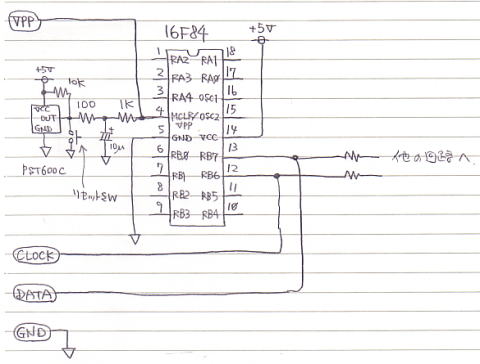 VPP
16F84
+5V
+5V
10K
VCC
OUT
GND
100
1K
10μ
PST600C
リセットSW
1 RA2 RA1 18
2 RA3 RA0 17
3 RA4 OSC1 16
4 MCLR/ OSC2 15
VPP
5 GND VCC 14
6 RB0 RB7 13
7 RB1 RB6 12
8 RB2 RB5 11
9 RB3 RB4 10
他の回路へ
CLOCK
DATA
GND